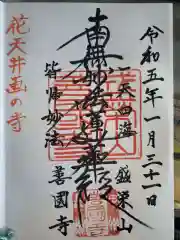 令和五年一月三十一日
一天四海
皆帰妙法
南無妙法蓮華経
鎮護山
善國寺
花天井画の寺